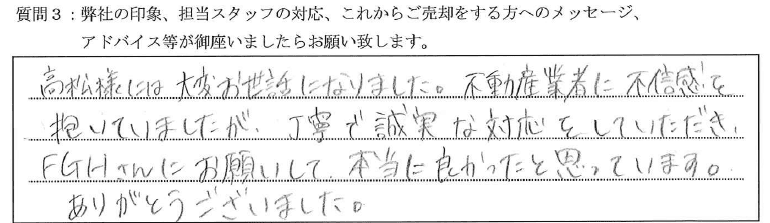 質問3：弊社の印象、担当スタッフの対応、これからご売却をする方へのメッセージ、
アドバイス等が御座いましたらお願い致します。
高松様には大変お世話になりました。不動産業者に不信感を
抱いていましたが、丁寧で誠実な対応をしていただき、
FGHさんにお願いして、本当に良かったと思っています。
ありがとうございました。